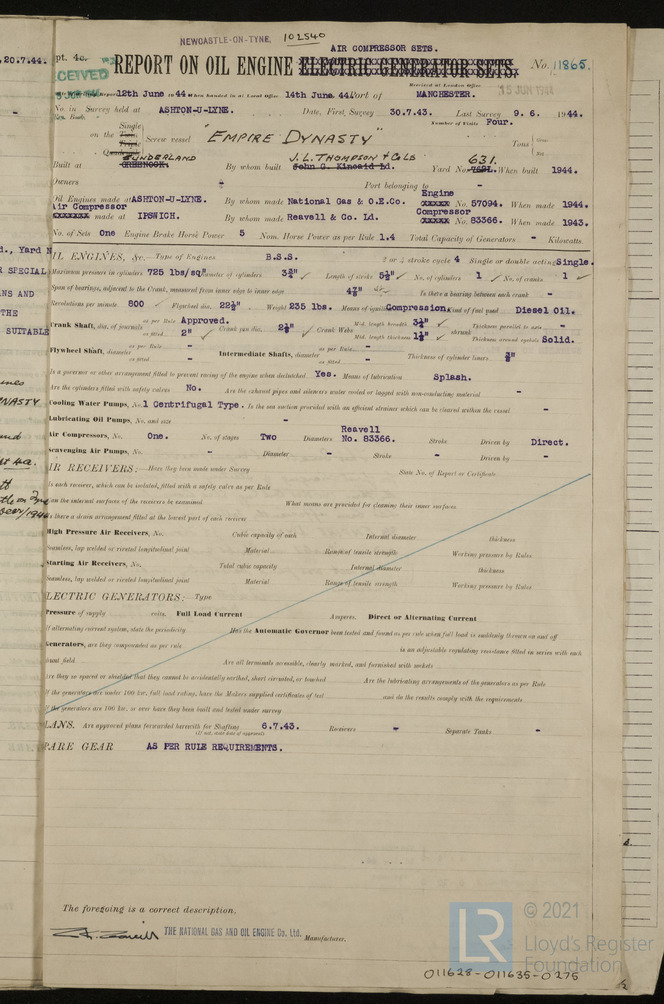 NEWCASTLE-ON-TYNE. 102540
AIR COMPRESSOR SETS.
20.7.44. pt. 4c. REPORT ON OIL ENGINE ELECTRIC GENERATOR SETS. No. 11865.
Received at London Office 15 JUN 1944
12th June 44 When handed in at Local Office 14th June 44 Port of MANCHESTER.
No. in Survey held at ASHTON-U-LYNE. Date, First Survey 30.7.43. Last Survey 9. 6. 1944.
Reg. Book. Number of Visits Four.
on the Single Twin Triple Quadruple Screw vessel "EMPIRE DYNASTY" Tons Gross Net
Built at SUNDERLAND GREENOCK. By whom built J.L. THOMPSON & Co Ld John G. Kincaid Ld. Yard No. 631. When built 1944.
Owners - Port belonging to -
Oil Engines made at ASHTON-U-LYNE. By whom made National Gas & O.E.Co. Engine No. 57094. When made 1944.
Air Compressor made at IPSWICH. By whom made Reavell & Co. Ld. Compressor No. 83366. When made 1943.
No. of Sets One Engine Brake Horse Power 5 Nom. Horse Power as per Rule 1.4 Total Capacity of Generators - Kilowatts.
OIL ENGINES, &c.—Type of Engines B.S.S. 2 or 4 stroke cycle 4 Single or double acting Single.
Maximum pressure in cylinders 725 lbs/sq" Diameter of cylinders 3¾" Length of stroke 5½" No. of cylinders 1 No. of cranks 1
Span of bearings, adjacent to the Crank, measured from inner edge to inner edge 4⅞" Is there a bearing between each crank -
Revolutions per minute 800 Flywheel dia. 22½" Weight 235 lbs. Means of ignition Compression. Kind of fuel used Diesel Oil.
Crank Shaft, dia. of journals as per Rule Approved. as fitted 2" Crank pin dia. 2⅛" Crank Webs Mid. length breadth 3¼" Mid. length thickness 1⅛" shrunk Thickness parallel to axis - Thickness around eyehole Solid.
Flywheel Shaft, diameter as per Rule - as fitted - Intermediate Shafts, diameter as per Rule - as fitted - Thickness of cylinder liners ⅜"
Is a governor or other arrangement fitted to prevent racing of the engine when declutched Yes. Means of lubrication Splash.
Are the cylinders fitted with safety valves No. Are the exhaust pipes and silencers water cooled or lagged with non-conducting material -
Cooling Water Pumps, No. 1 Centrifugal Type. Is the sea suction provided with an efficient strainer which can be cleared within the vessel -
Lubricating Oil Pumps, No. and size -
Air Compressors, No. One. No. of stages Two Diameters Reavell No. 83366. Stroke Driven by Direct.
Scavenging Air Pumps, No. - Diameter - Stroke - Driven by -
AIR RECEIVERS:—Have they been made under Survey State No. of Report or Certificate
Is each receiver, which can be isolated, fitted with a safety valve as per Rule
Can the internal surfaces of the receivers be examined What means are provided for cleaning their inner surfaces
Is there a drain arrangement fitted at the lowest part of each receiver
High Pressure Air Receivers, No. Cubic capacity of each Internal diameter thickness
Seamless, lap welded or riveted longitudinal joint Material Range of tensile strength Working pressure by Rules
Starting Air Receivers, No. Total cubic capacity Internal diameter thickness
Seamless, lap welded or riveted longitudinal joint Material Range of tensile strength Working pressure by Rules
ELECTRIC GENERATORS:—Type
Pressure of supply volts. Full Load Current Amperes. Direct or Alternating Current
If alternating current system, state the periodicity Has the Automatic Governor been tested and found as per rule when full load is suddenly thrown on and off
Generators, are they compounded as per rule is an adjustable regulating resistance fitted in series with each
shunt field Are all terminals accessible, clearly marked, and furnished with sockets
Are they so spaced or shielded that they cannot be accidentally earthed, short circuited, or touched Are the lubricating arrangements of the generators as per Rule
If the generators are under 100 kw. full load rating, have the Makers supplied certificates of test and do the results comply with the requirements
If the generators are 100 kw. or over have they been built and tested under survey
PLANS. Are approved plans forwarded herewith for Shafting 6.7.43. Receivers - Separate Tanks -
(If not, state date of approval)
SPARE GEAR AS PER RULE REQUIREMENTS.
The foregoing is a correct description,
THE NATIONAL GAS AND OIL ENGINE Co. Ltd. Manufacturer.
LR © 2021
Lloyd's Register
Foundation
011628-011635-0275